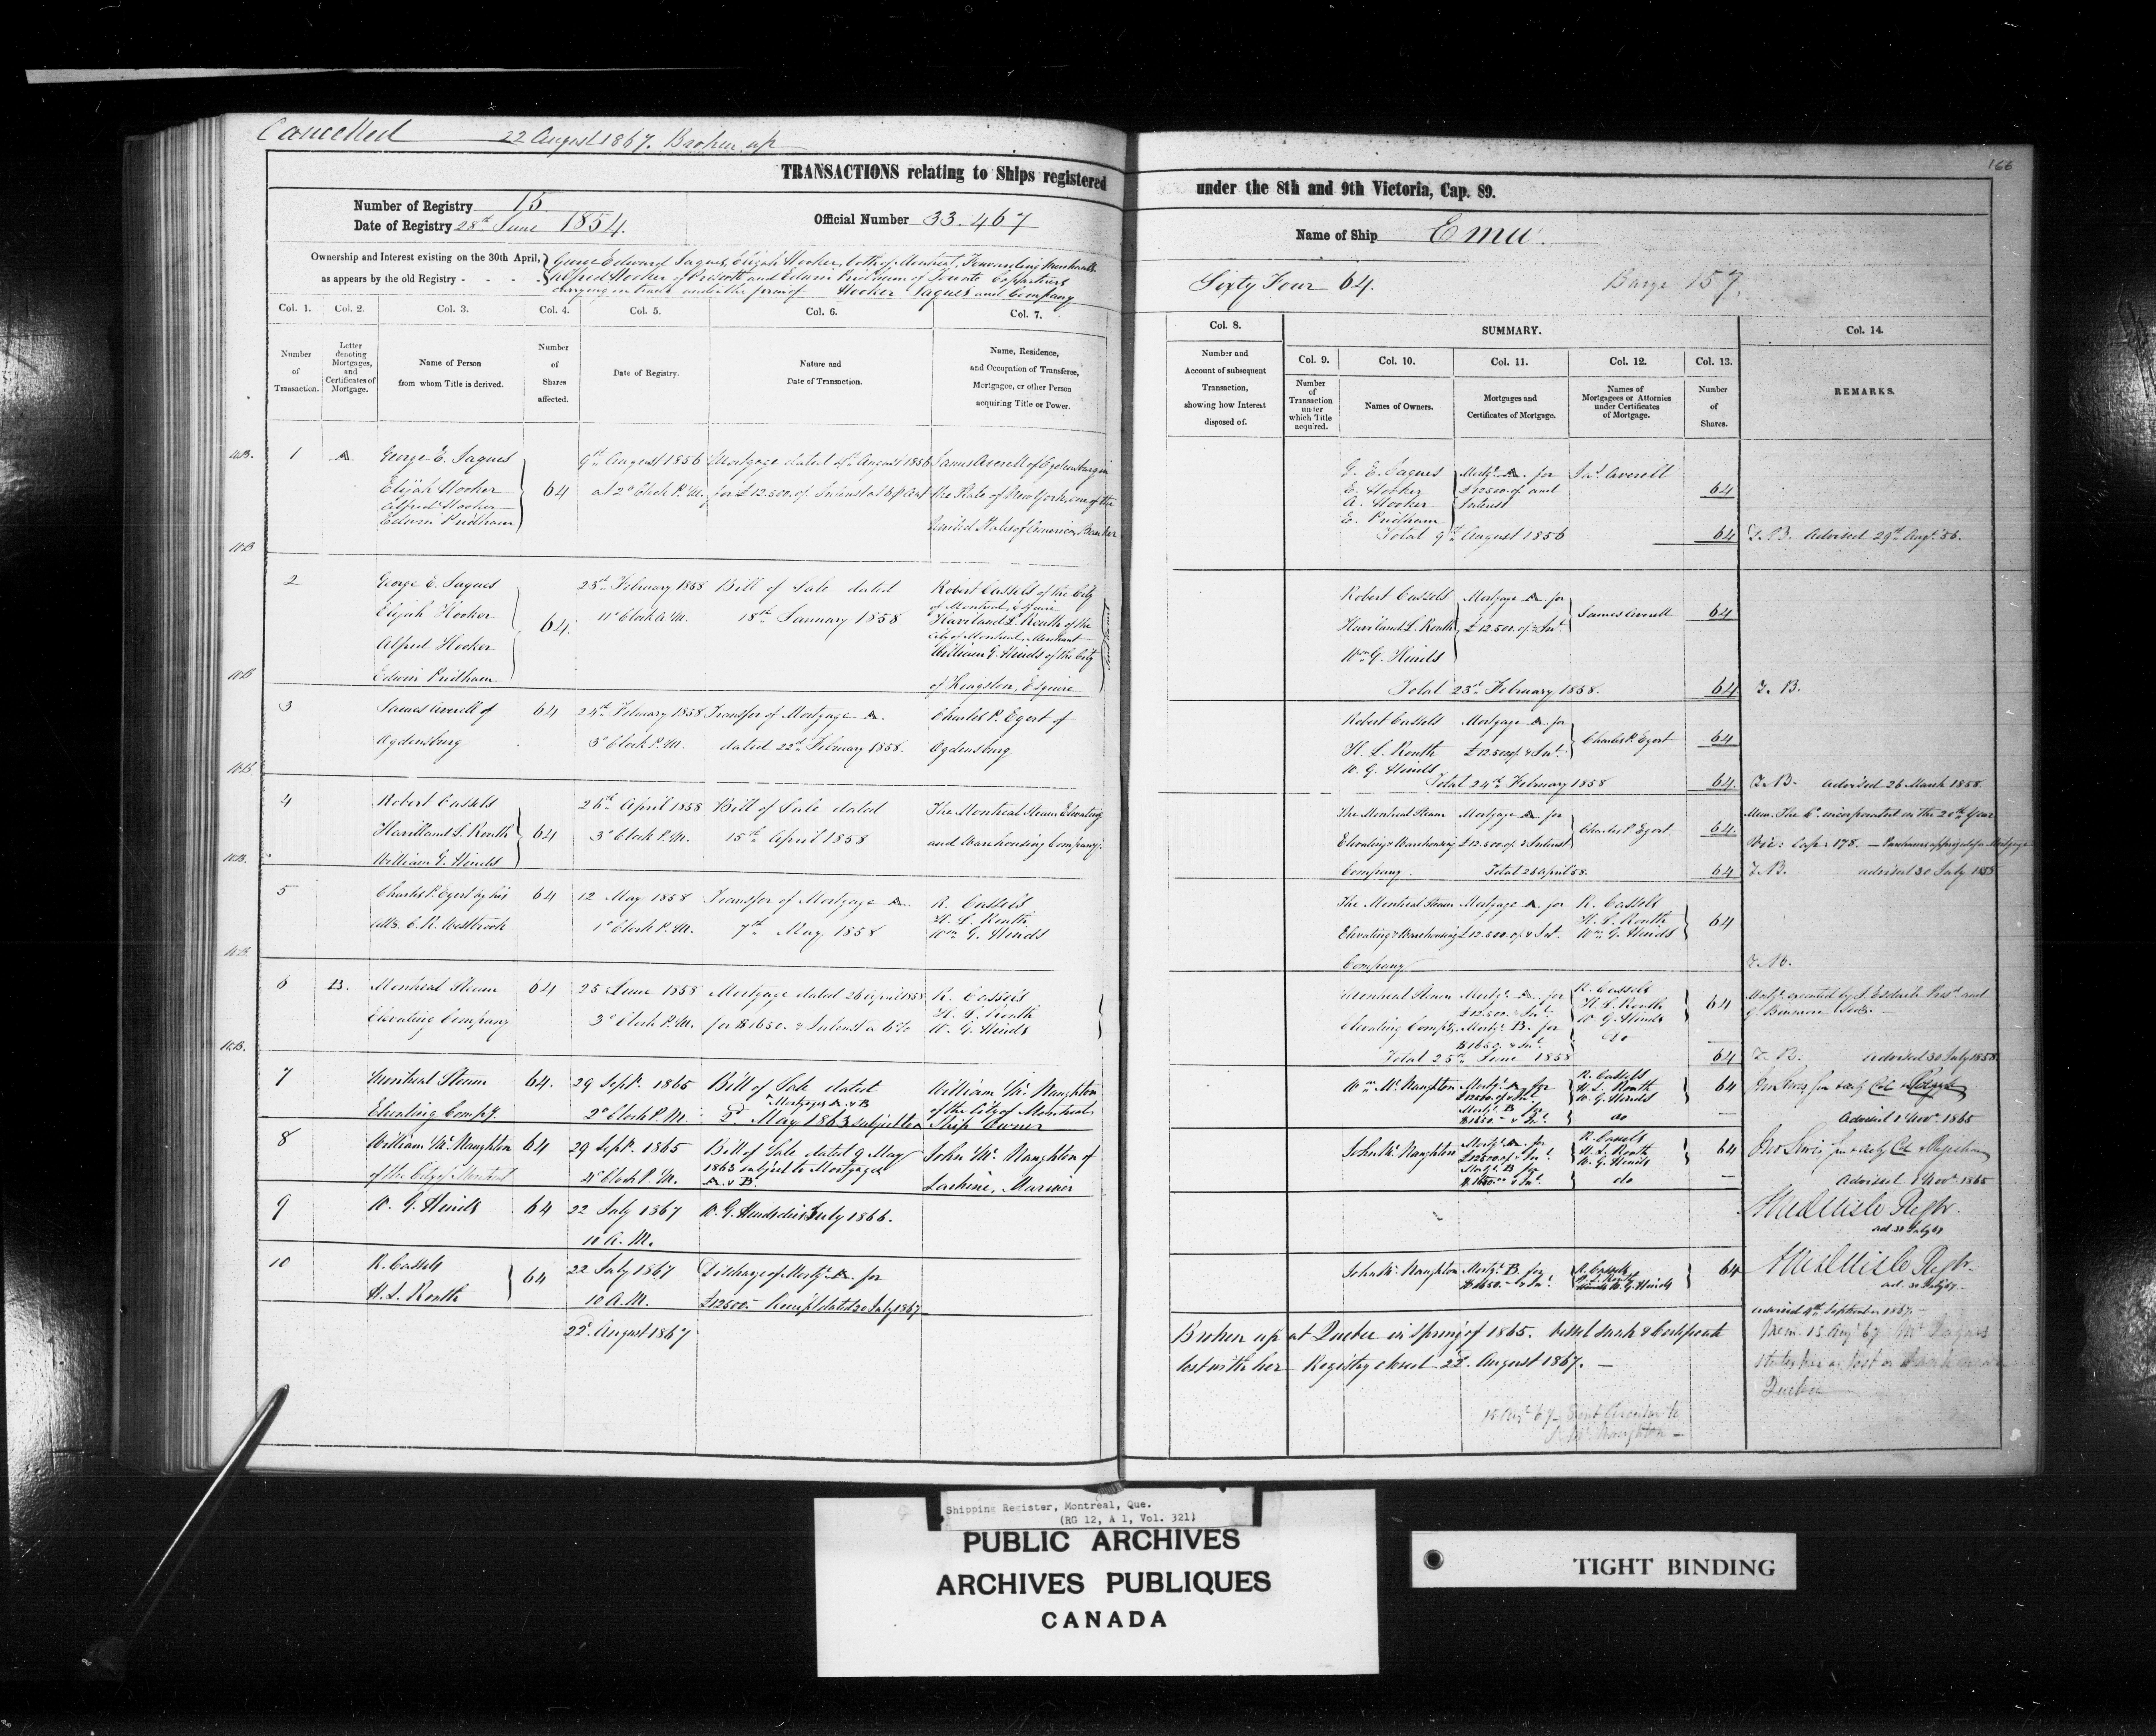 Cancelled 22 August 1867. Broken up
166
TRANSACTIONS relating to Ships registered under the 8th and 9th Victoria, Cap. 89.
Number of Registry 15
Date of Registry 28th June 1854.
Official Number 33.467
Name of Ship Emu.
Ownership and Interest existing on the 30th April,
as appears by the old Registry - - - -
George Edward Jaques, Elijah Hooker, both of Montreal, Forwarding Merchants
Alfred Hooker of Prescott and Edwin Pridham of Toronto Copartners
carrying on trade under the firm of Hooker Jaques and Company
Sixty Four 64.
Barge 157.
Col. 1. Col. 2. Col. 3. Col. 4. Col. 5. Col. 6. Col. 7.
Number of Transaction.
Letter denoting Mortgages, and Certificates of Mortgage.
Name of Person from whom Title is derived.
Number of Shares affected.
Date of Registry.
Nature and Date of Transaction.
Name, Residence, and Occupation of Transferee, Mortgagee, or other Person acquiring Title or Power.
Col. 8. SUMMARY. Col. 14.
Number and Account of subsequent Transaction, showing how Interest disposed of.
Col. 9. Col. 10. Col. 11. Col. 12. Col. 13.
Number of Transaction under which Title acquired.
Names of Owners.
Mortgages and Certificates of Mortgage.
Names of Mortgagees or Attornies under Certificates of Mortgage.
Number of Shares.
REMARKS.
1 A George E. Jaques 9th August 1856 Mortgage dated August 1856 James Averell of Ogdensburg in
Elijah Hooker 64 at 2 o'Clock P.M. for £12.500. of Interest at 6 p Cent the State of New York, one of the
Alfred Hooker
Edwin Pridham United States of America, Banker
G. E. Jaques Mortge A. for Jas Averell
E. Hooker £12500. of and 64
A. Hooker Interest
E. Pridham
Total 9th August 1856 64 T.B. Advised 29th Augt 56.
2 George E. Jaques 23rd February 1858 Bill of Sale dated Robert Cassels of the City
of Montreal, Esquire
Elijah Hooker 64. 11 o'Clock A.M. 18th January 1858. Haviland L. Routh of the
City of Montreal, Merchant
Alfred Hooker William G. Hinds of the City
Edwin Pridham of Kingston, Esquire
Robert Cassels Mortgage A. for
Haviland L. Routh £12.500. of & Int. James Averell 64
Wm G. Hinds
Total 23rd February 1858. 64 T.B.
3 James Averell of 64 24th February 1858 Transfer of Mortgage A. Charles P. Egert of
Ogdensburg 3 o'Clock P.M. dated 22nd February 1858. Ogdensburg
Robert Cassels Mortgage A. for
H. L. Routh £12.500 of & Int. Charles P. Egert 64
W. G. Hinds
Total 24th February 1858 64 T.B. advised 26 March 1858.
4 Robert Cassels 26th April 1858 Bill of Sale dated The Montreal Steam Elevating
Haviland L. Routh 64 3 o'Clock P.M. 15th April 1858 and Warehousing Company.
William G. Hinds
The Montreal Steam Mortgage A. for
Elevating & Warehousing £12.500. of & Interest Charles P. Egert. 64.
Company. Total 26 April 58. 64
Mem. The Co. incorporated in the 20th Year
Vic: Cap: 178.
T.B. advised 30 July 1858
5 Charles P. Egert by his 64 12 May 1858 Transfer of Mortgage A. R. Cassels
Atty. C. R. Westbrook 1 o'Clock P.M. 7th May 1858 H. L. Routh
Wm G. Hinds
The Montreal Steam Mortgage A. for R. Cassels
H. L. Routh 64
Elevating & Warehousing £12.500. of & Int. Wm G. Hinds
Company T.B.
6 B. Montreal Steam 64 25 June 1858 Mortgage dated 26 April 1858 R. Cassels
H. L. Routh
Elevating Company 3 o'Clock P.M. for $1650. & Interest a 6% W. G. Hinds
Montreal Steam Mortge A. for R. Cassels
£12.500. & Int. H. L. Routh 64
Elevating Compy. Mortge B. for W. G. Hinds
$1650. & Int. do
Total 25th June 1858 64 T.B. advised 30 July 1858
7 Montreal Steam 64. 29 Sept. 1865 Bill of Sale dated William McNaughton
of the City of Montreal
Elevating Compy. 2 o'Clock P.M. 2d. May 1863 subject to Mortgages A. & B Ship Owner
Wm McNaughton Mortge A. for R. Cassels
£12500. of & Int. H. L. Routh 64
Mortge B for W. G. Hinds
$1650.- & Int. do
Advised 1 Novr. 1865
8 William McNaughton 64 29 Sept. 1865 Bill of Sale dated 9 May John McNaughton of
of the City of Montreal 4 o'Clock P.M. 1863 subject to Mortgages A. & B. Lachine, Mariner
John McNaughton Mortge A. for R. Cassels
£12500. of & Int. H. L. Routh 64
Mortge B for W. G. Hinds
$1650.00 & Int. do
Advised 1 Novr. 1865
9 W. G. Hinds 64 22 July 1867 W. G. Hinds died July 1866.
10 A.M.
ad. 30 July 67
10 R. Cassels 64 22 July 1867 Discharge of Mortge A. for
H. L. Routh 10 A.M. £12500.- Receipt dated 20 July 1867
John McNaughton Mortge B. for R. Cassels
$1650.- & Int. W. G. Hinds 64
ad. 30 July 67.
22d. August 1867
Broken up at Quebec in Spring of 1865. Vessel sunk & Certificate
lost with her Registry closed 22d. August 1867. -
advised 4th September 1867.-
Mem. 15 Augt 67 Mr. Jaques
states her as lost or sunk near
Quebec
15 Augt 67 Sent Circular to
J. McNaughton -
Shipping Register, Montreal, Que.
(RG 12, A 1, Vol. 321)
PUBLIC ARCHIVES
ARCHIVES PUBLIQUES
CANADA
TIGHT BINDING